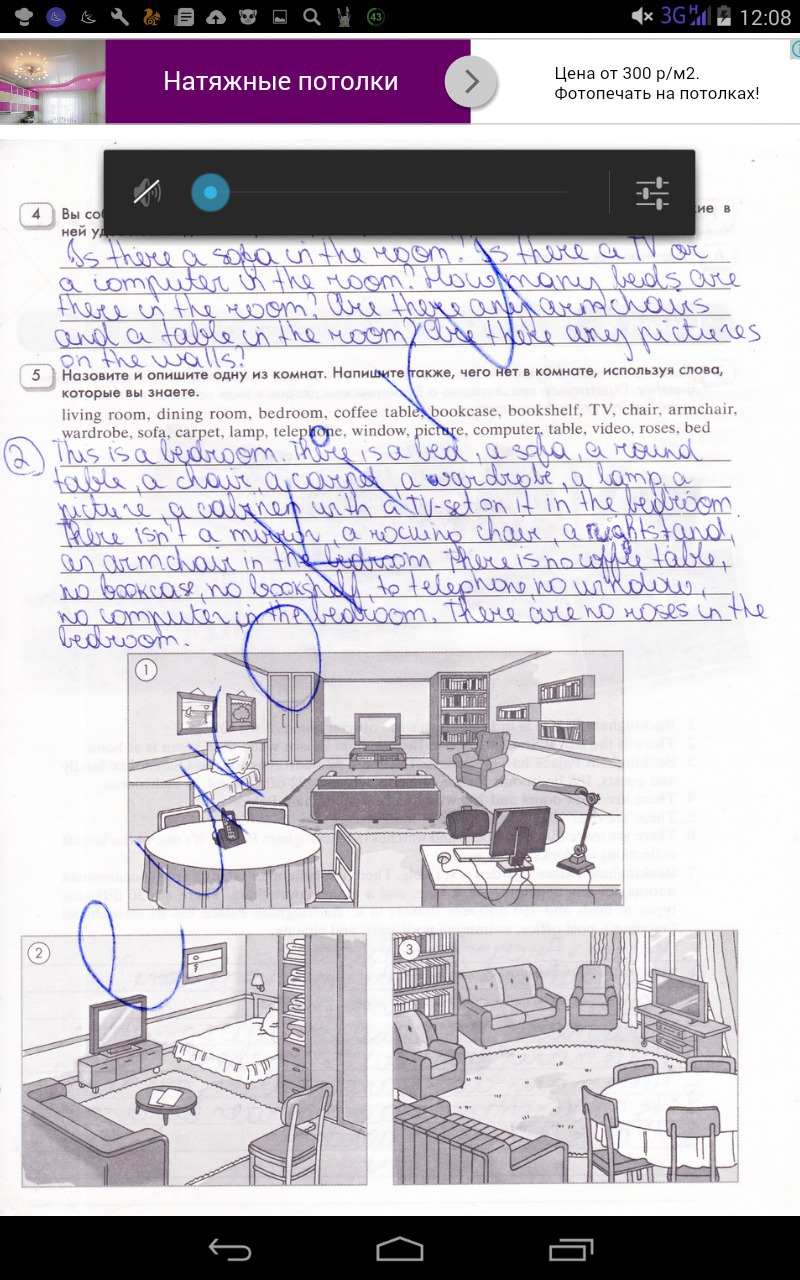 43 3G H 12:08
Натяжные потолки
Цена от 300 р/м2.
Фотопечать на потолках!
4 Вы в
ней
Is there a sofa in the room? Is there a TV or
a computer in the room? How many beds are
there in the room? Are there any armchairs
and a table in the room? Are there any pictures
on the walls?
5 Назовите и опишите одну из комнат. Напишите также, чего нет в комнате, используя слова,
которые вы знаете.
living room, dining room, bedroom, coffee table, bookcase, bookshelf, TV, chair, armchair,
wardrobe, sofa, carpet, lamp, telephone, window, picture, computer, table, video, roses, bed
2 This is a bedroom. There is a bed, a sofa, a round
table, a chair, a carpet, a wardrobe, a lamp, a
picture, a cabinet with a TV-set on it in the bedroom
There isn't a mirror, a rocking chair, a nightstand,
an armchair in the bedroom There is no coffee table,
no bookcase, no bookshelf, to telephone, no window,
no computer in the bedroom. There are no roses in the
bedroom.
1
2
3